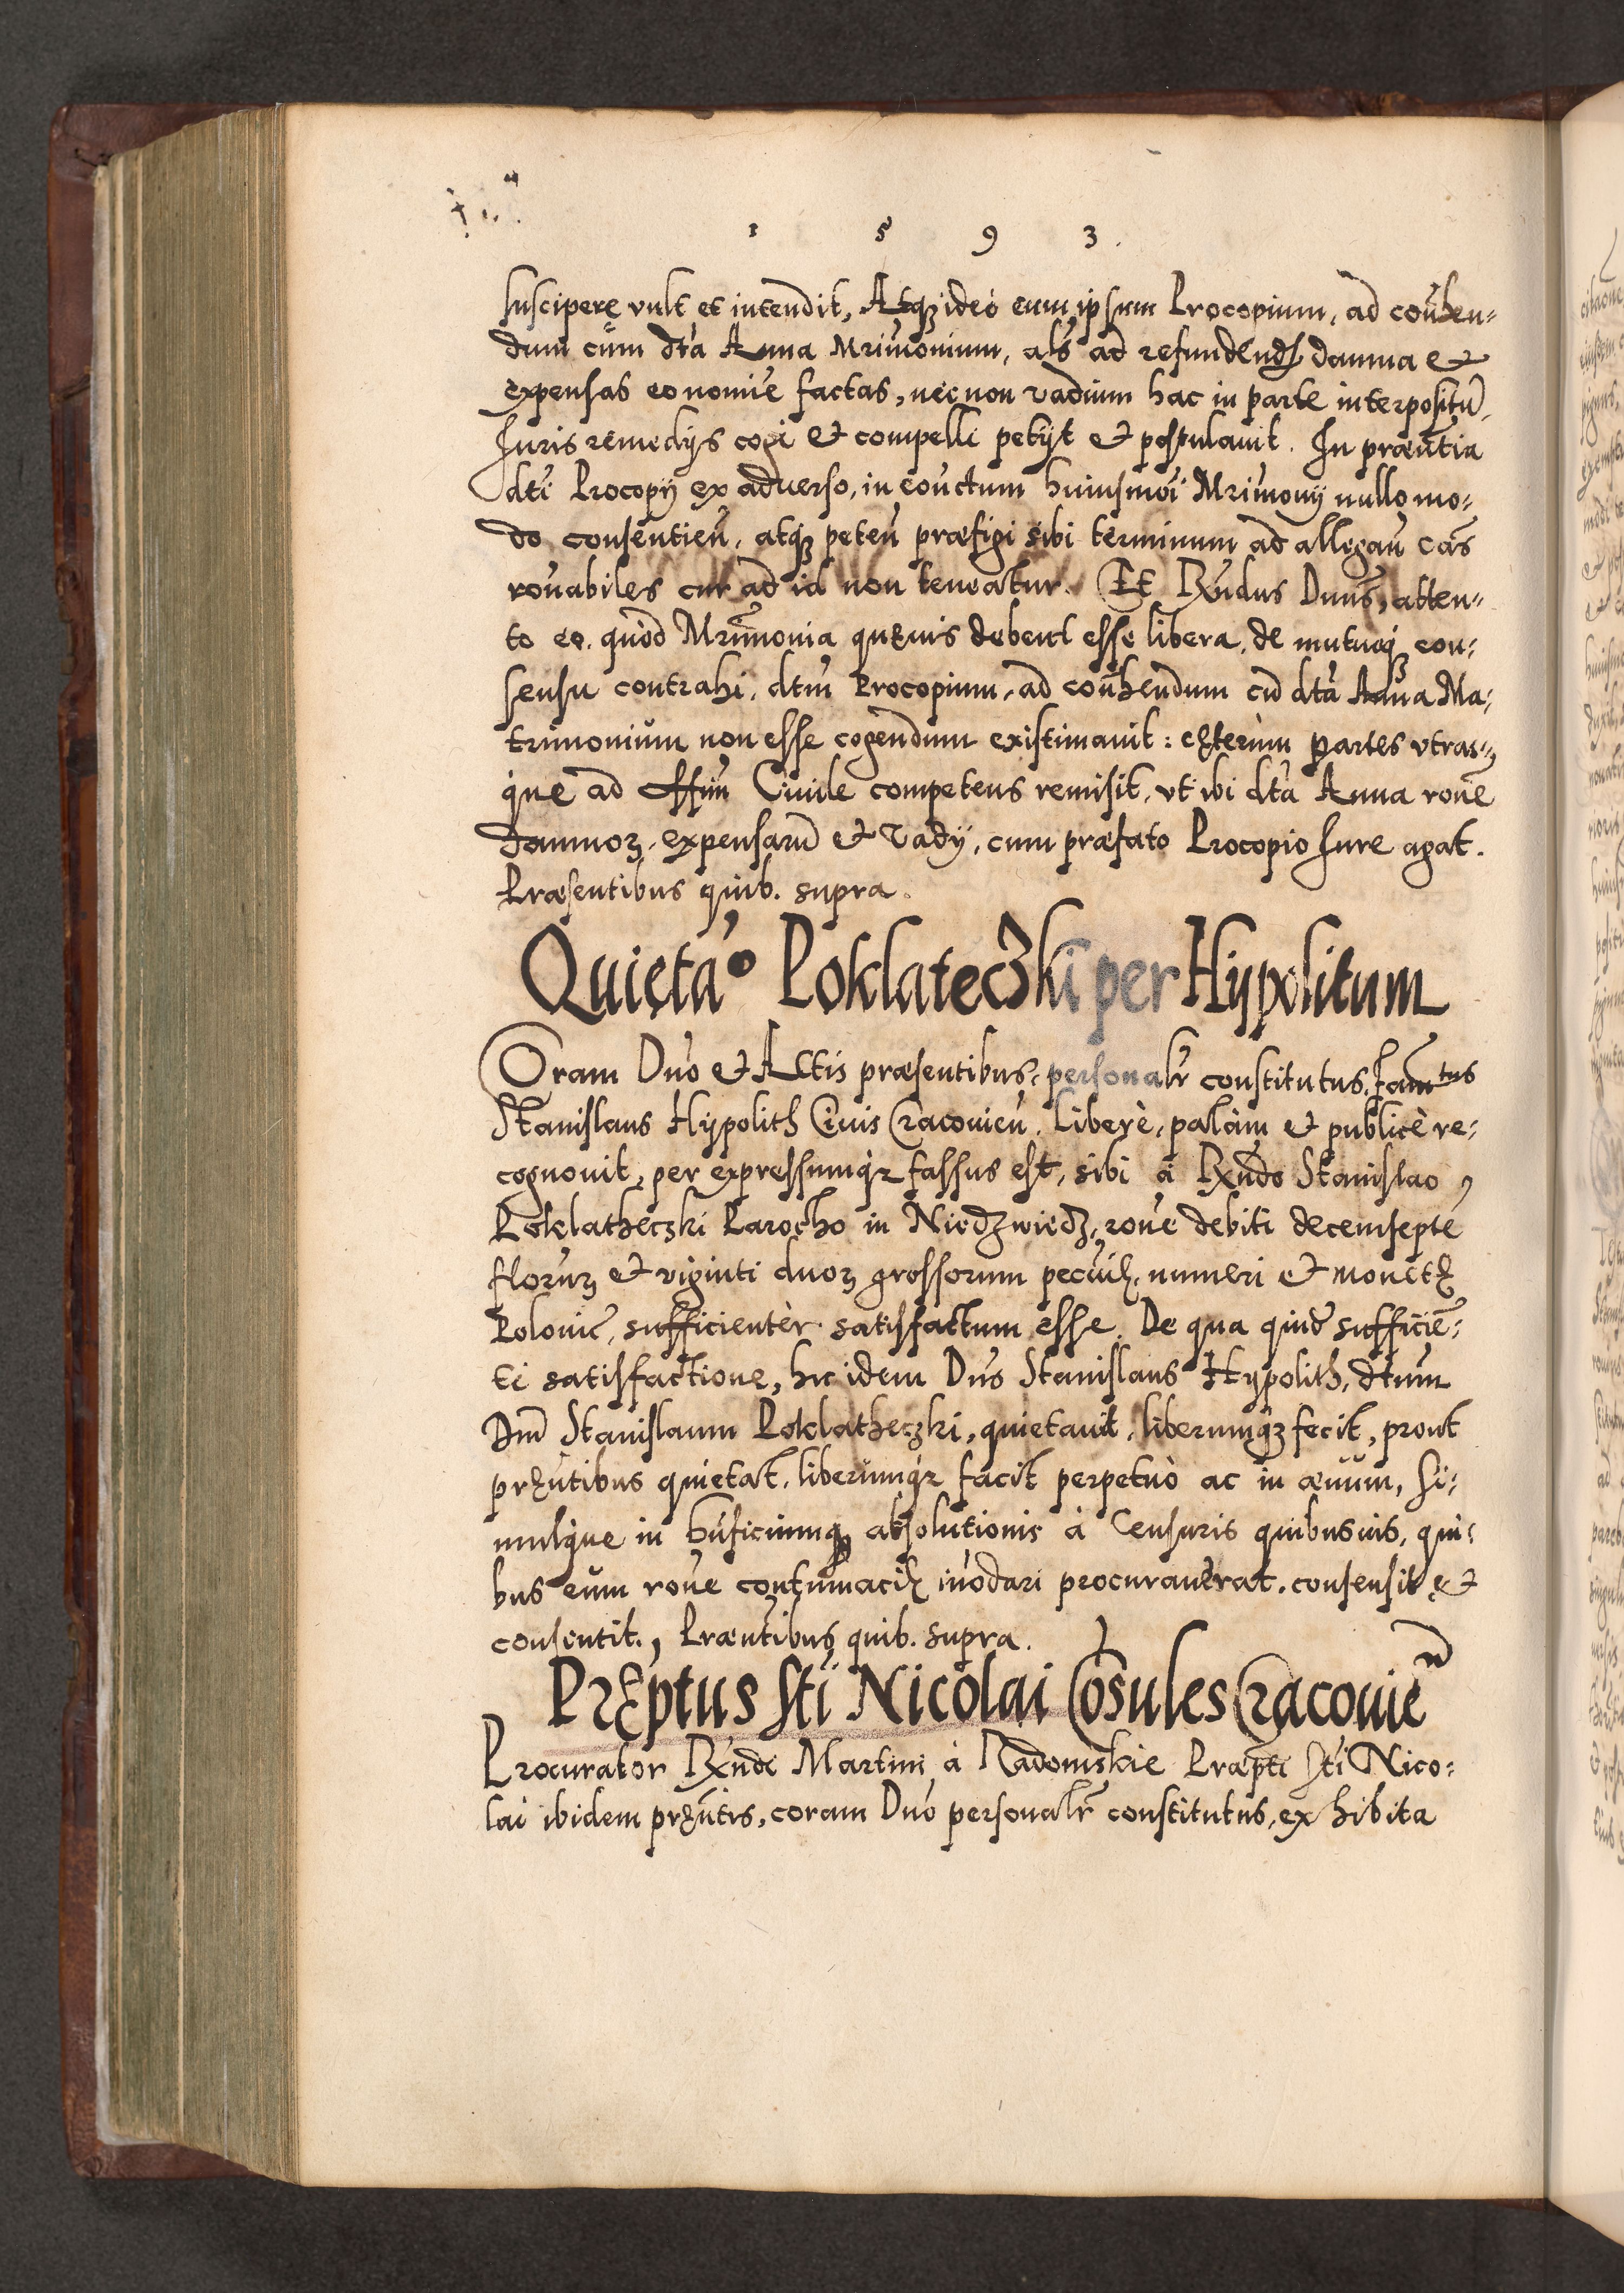 1 5 9 3.
suscipere vult et intendit, Atqꝫ ideo eum ipsum Procopium, ad con̄hen-
dum cum dta Anna Mrimonium, als ad refundendꝫ damna et
expensas eo nomine factas, necnon vadium hac in parte interpositū,
Iuris remedijs cogi et compelli petijt et postulauit. In præntia
dti Procopij ex aduerso, in conctum huiusmoi Mrimonij nullo mo-
do consentien̄, atqꝫ peten̄ præfigi sibi terminum ad allegan̄ cās
ronabiles cur ad id non teneatur. Et Rn̄dus Dnus, atten-
to eo, quòd Mrimonia quæuis debent esse libera, de mutuoqꝫ con-
sensu contrahi, dtm Procopium, ad con̄hendum cū dta Anna Ma-
trimonium non esse cogendum existimauit: cęterùm partes vtras-
que ad Offm Ciuile competens remisit, vt ibi dta Anna rone
damnoꝝ, expensarū et vadij, cum præfato Procopio Iure agat.
Præsentibus quib. supra.
Quietao Poklateczki per Hypolitum
Coram Dno et Actis præsentibus, personalr constitutus, Famtus
Stanislaus Hypolith Ciuis Cracouien̄, Liberè, palàm et publicè re-
cognouit, per expressumqꝫ fassus est, sibi à Rn̄do Stanislao
Poklatheczki Parocho in Niedzwiedz, rone debiti decemseptē
floruꝫ et viginti duoꝝ grossorum pecunię, numeri et monetę
Polonic̄, sufficientèr satisfactum esse. De qua quid sufficiē-
ti satisfactione, hic idem Dnus Stanislaus Hypolith, dtum
Dnm Stanislaum Poklatheczki, quietauit, liberumqꝫ fecit, prout
prꝫntibus quietat, liberumqꝫ facit perpetuò ac in æuum, si-
mulque in bnficiumqꝫ absolutionis à Censuris quibusuis, qui-
bus eum rone contumacię inodari procurauerat, consensit et
consentit. Præntibus quib. supra.
Pręptus Sti Nicolai Cosules Cracouien̄
Procurator Rn̄di Martini à Radomskie Præpti Sti Nico-
lai ibidem pręntis, coram Dno personalr constitutus, exhibita